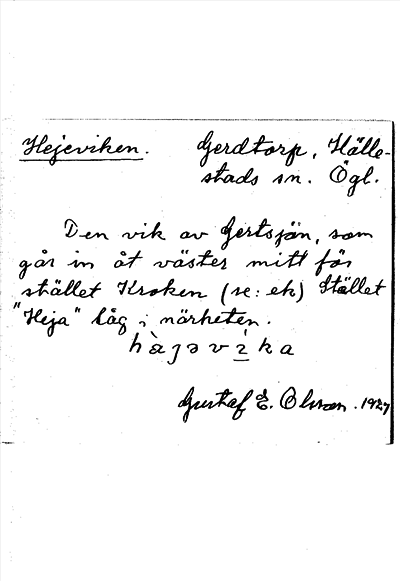 Hejeviken. Gerdtorp, Hälle-
stads sn. Ögl.
Den vik av Gertsjön, som
går in åt väster mitt för
stället Kroken (se: ek) Stället
"Heja" låg i närheten.
hàjəvìka
Gustaf E. Olsson. 1927